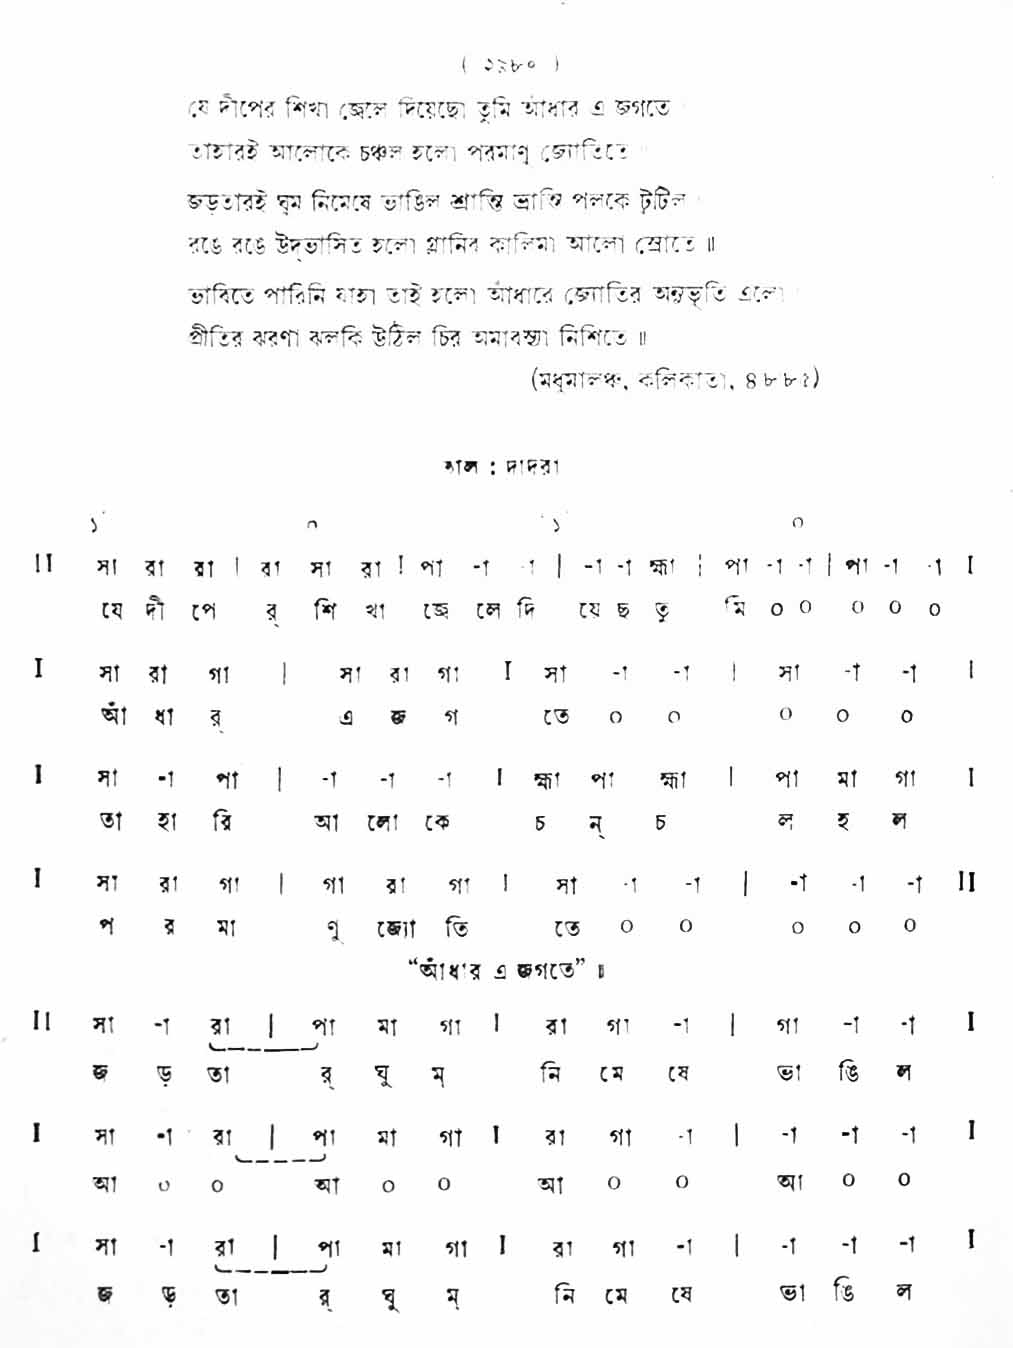 ( ১২৮০ )
যে দীপের শিখা জ্বেলে দিয়েছো তুমি আঁধার এ জগতে
তাহারই আলোকে চঞ্চল হলো পরমাণু জ্যোতিতে
জড়তারই ঘুম নিমেষে ভাঙিল শ্রান্তি ভ্রান্তি পলকে টুটিল
রঙে রঙে উদ্ভাসিত হলো গ্লানির কালিমা আলো স্রোতে ॥
ভাবিতে পারিনি যাহা তাই হলো আঁধারে জ্যোতির অনুভূতি এলো
প্রীতির ঝরণা ঝলকি উঠিল চির অমাবস্যা নিশিতে ॥
(মধুমালঞ্চ, কলিকাতা, ৪৮৮৫)
তাল : দাদরা
১ ০ ১ ০
II সা রা রা | রা সা রা | পা -া -া | -া -া হ্মা | পা -া -া | পা -া -া I
যে দী পে র্ শি খা জ্বে লে দি য়ে ছ তু মি ০ ০ ০ ০ ০
I সা রা গা | সা রা গা I সা -া -া | সা -া -া I
আঁ ধা র্ এ জ গ তে ০ ০ ০ ০ ০
I সা -া পা | -া -া -া I হ্মা পা হ্মা | পা মা গা I
তা হা রি আ লো কে চ ন্ চ ল হ ল
I সা রা গা | গা রা গা I সা -া -া | -া -া -া II
প র মা ণু জ্যো তি তে ০ ০ ০ ০ ০
“আঁধার এ জগতে” ॥
II সা -া রা | পা মা গা I রা গা -া | গা -া -া I
জ ড় তা র্ ঘু ম্ নি মে ষে ভা ঙি ল
I সা -া রা | পা মা গা I রা গা -া | -া -া -া I
আ ০ ০ আ ০ ০ আ ০ ০ আ ০ ০
I সা -া রা | পা মা গা I রা গা -া | -া -া -া I
জ ড় তা র্ ঘু ম্ নি মে ষে ভা ঙি ল